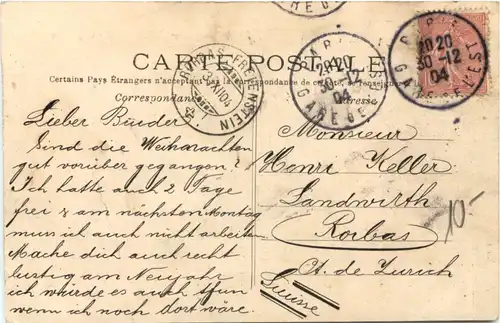 CARTE POSTALE
Certains Pays Étrangers n'acceptent pas la correspondance de ce côté, se renseigner
Correspondance
Adresse
PARIS
20 20
30-12
04
GARE DE L'EST
PARIS
20 20
30-12
04
GARE DE
GARE DE
RORBAS-FREIENSTEIN
XII 04
Lieber Bruder
Sind die Weihnachten
gut vorüber gegangen?
Ich hatte auch 2 Tage
frei & am nächsten Montag
muss ich auch nicht arbeiten
Mache dich auch recht
lustig am Neujahr
ich würde es auch thun
wenn ich noch dort wäre.
Monsieur
Henri Keller
Landwirth
Rorbas
Ct. de Zurich
Suisse
10-